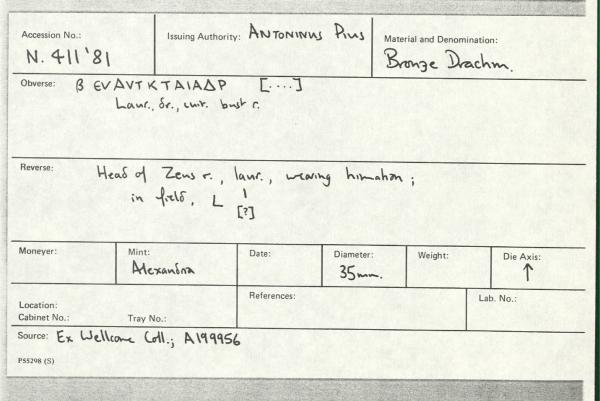 Accession No.: N. 411'81
Issuing Authority: ANTONINUS PIUS
Material and Denomination: Bronze Drachm.
Obverse: β ЄVΑVΤΚΤΑΙΑΔΡ [....]
Laur., dr., cuir. bust r.
Reverse: Head of Zeus r., laur., wearing himation;
in field, L I
[?]
Moneyer:
Mint: Alexandria
Date:
Diameter: 35mm.
Weight:
Die Axis: ↑
Location:
Cabinet No.: Tray No.:
References:
Lab. No.:
Source: Ex Wellcome Coll.; A199956
P55298 (S)